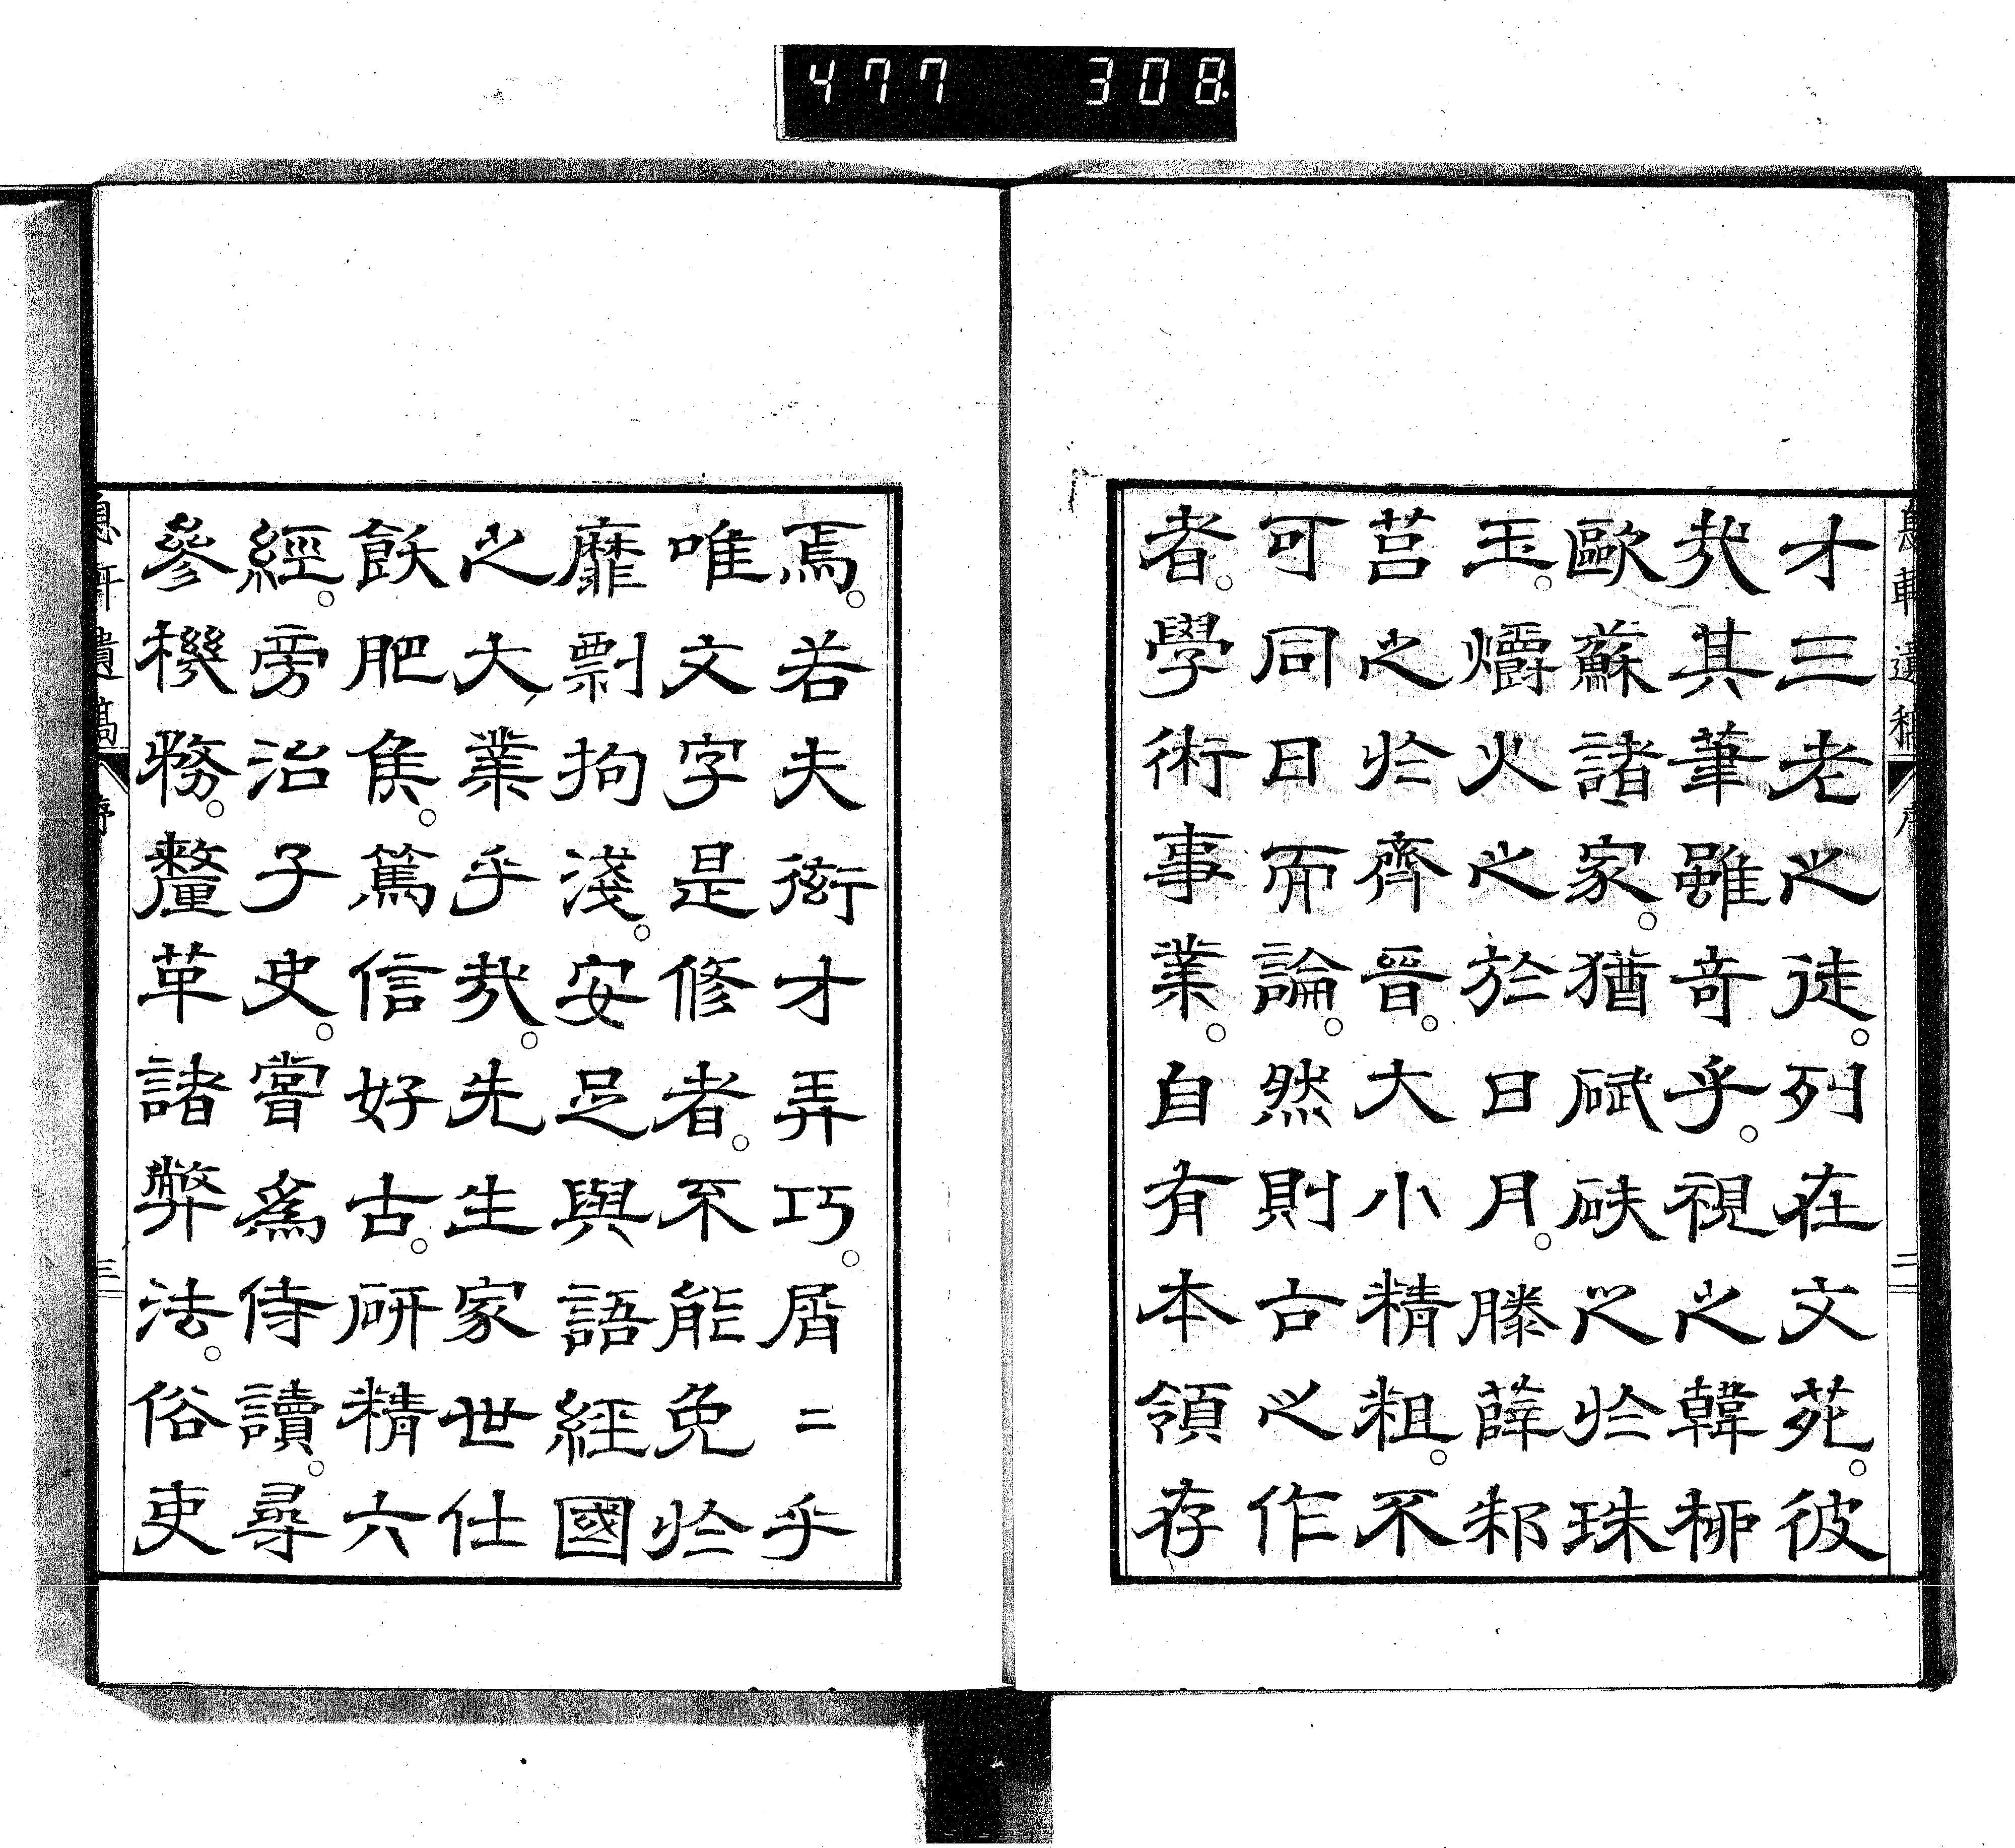 477 308
息軒遺稿 序 二
才三老之徒。列在文苑。彼
哉其筆雖奇乎。視之韓柳
歐蘇諸家。猶碔砆之於珠
玉。爝火之於日月。滕薛邾
莒之於齊晉。大小精粗。不
可同日而論。然則古之作
者。學術事業。自有本領存
焉。若夫衒才弄巧。屑〻乎
唯文字是修者。不能免於
靡剽拘淺。安足與語經國
之大業乎哉。先生家世仕
飫肥矦。篤信好古。研精六
經。旁治子史。嘗爲侍讀。尋
參機務。釐革諸弊法。俗吏
息軒遺稿 序 三